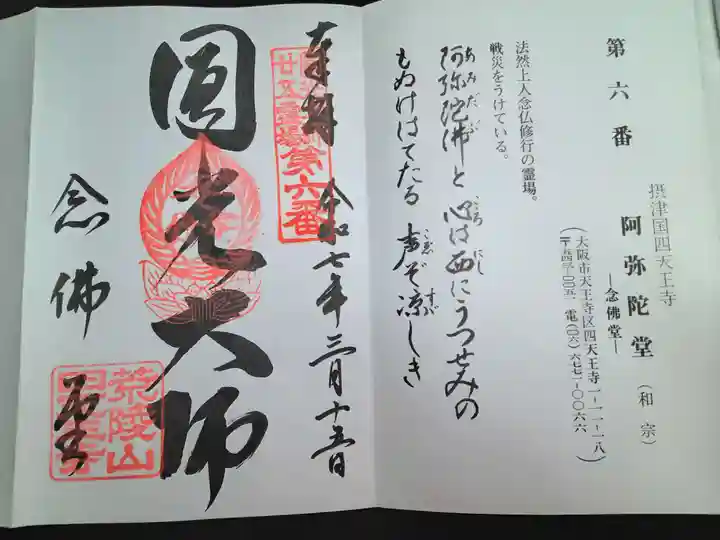 第六番
摂津国四天王寺
阿弥陀堂（和宗）
―念佛堂―
（大阪市天王寺区四天王寺一-一一-一八
〒五四三-〇〇五一 電(〇六)六七七一-〇〇六六）
法然上人念仏修行の霊場。
戦災をうけている。
阿弥陀佛と心は西にうつせみの
もぬけはてたる声ぞ凉しき
奉拝 令和七年三月十五日
第六番
圓光大師
念佛堂
荒陵山
四天王寺